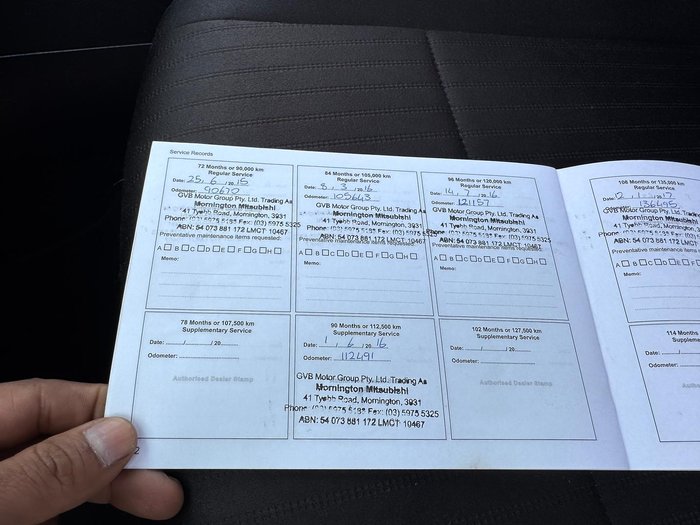 Service Records
72 Months or 90,000 km
Regular Service
Date: 25, 6, 2015
Odometer: 90670
GVB Motor Group Pty. Ltd. Trading As
Mornington Mitsubishi
41 Tyabb Road, Mornington, 3931
Phone: (03) 5975 5185 Fax: (03) 5975 5325
ABN: 54 073 881 172 LMCT: 10467
Preventative maintenance items requested:
A B C D E F G H
Memo:
84 Months or 105,000 km
Regular Service
Date: 8, 3, 2016
Odometer: 105643
GVB Motor Group Pty. Ltd. Trading As
Mornington Mitsubishi
41 Tyabb Road, Mornington, 3931
Phone: (03) 5975 5185 Fax: (03) 5975 5325
ABN: 54 073 881 172 LMCT: 10467
Preventative maintenance items requested:
A B C D E F G H
Memo:
96 Months or 120,000 km
Regular Service
Date: 14, 7, 2016
Odometer: 121157
GVB Motor Group Pty. Ltd. Trading As
Mornington Mitsubishi
41 Tyabb Road, Mornington, 3931
Phone: (03) 5975 5185 Fax: (03) 5975 5325
ABN: 54 073 881 172 LMCT: 10467
Preventative maintenance items requested:
A B C D E F G H
Memo:
108 Months or 135,000 km
Regular Service
Date:
Odometer: 136445
GVB Motor Group Pty. Ltd. Trading As
Mornington Mitsubishi
41 Tyabb Road, Mornington, 3931
ABN: 54 073 881 172 LMCT:
Preventative maintenance items
A B C D E F
Memo:
78 Months or 107,500 km
Supplementary Service
Date: ......./......./20.......
Odometer:
Authorised Dealer Stamp
90 Months or 112,500 km
Supplementary Service
Date: 1, 6, 2016
Odometer: 112491
GVB Motor Group Pty. Ltd. Trading As
Mornington Mitsubishi
41 Tyabb Road, Mornington, 3931
Phone: (03) 5975 5185 Fax: (03) 5975 5325
ABN: 54 073 881 172 LMCT: 10467
102 Months or 127,500 km
Supplementary Service
Date: ......./......./20.......
Odometer:
Authorised Dealer Stamp
114 Months
Supplementary
Date:
Odometer:
Authorised
2